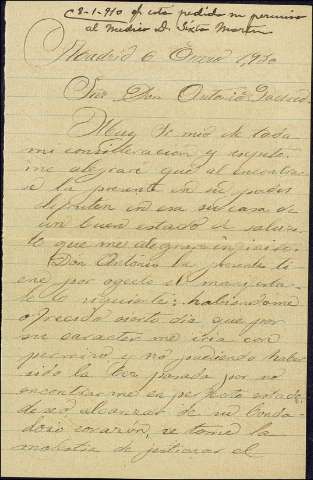 8-1-910 pedido
al Medico D. Sixto Martin
Madrid 6 Enero 1,910
Snr. Don Antonio
Muy Sr mio de toda
mi consideracion y respeto.
me alegraré que al encontrar
se la presente en su poder
disfruten en esa su casa de
un buen estado de salud
lo que me alegraria
Don Antonio la presente ti
ene por ogeto el manifestar
le lo siguiente: habiendome
ofrecido aserto dia que por
su caracter me iria con
permiso, y no pudiendo haber
sido la vez pasada por no
encontrarme en perfecto estado;
deseo alcanzar de su bonda
doso corazón, se tome la
molestia de gestionar el